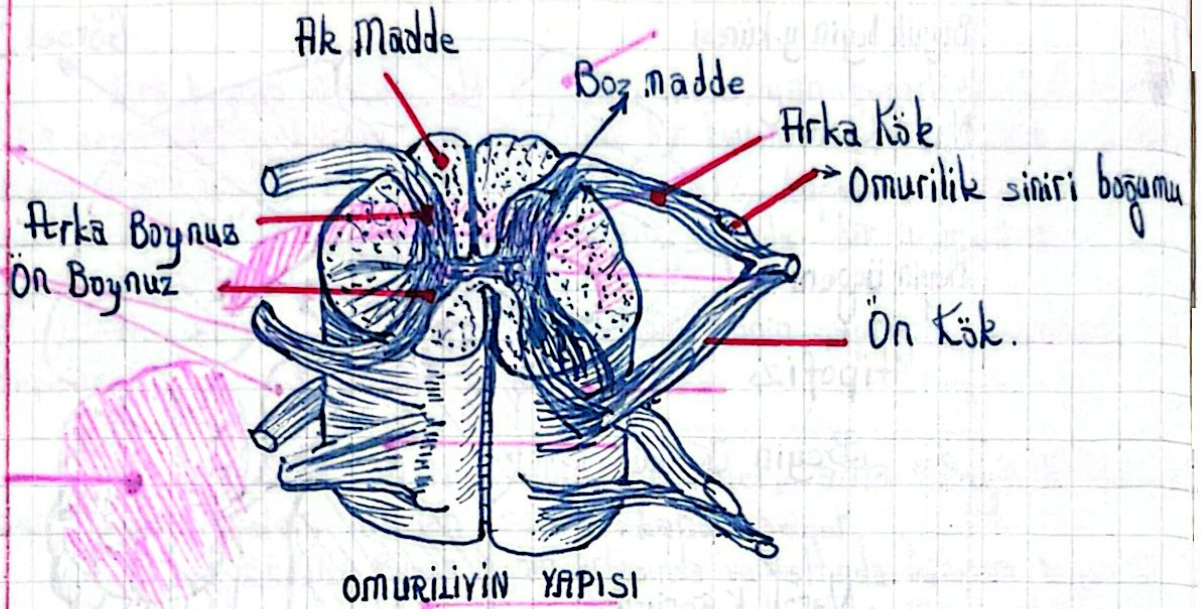 Ak Madde
Boz madde
Arka Kök
Omurilik siniri boğumu
Arka Boynuz
Ön Boynuz
Ön Kök.
OMURİLİYİN YAPISI